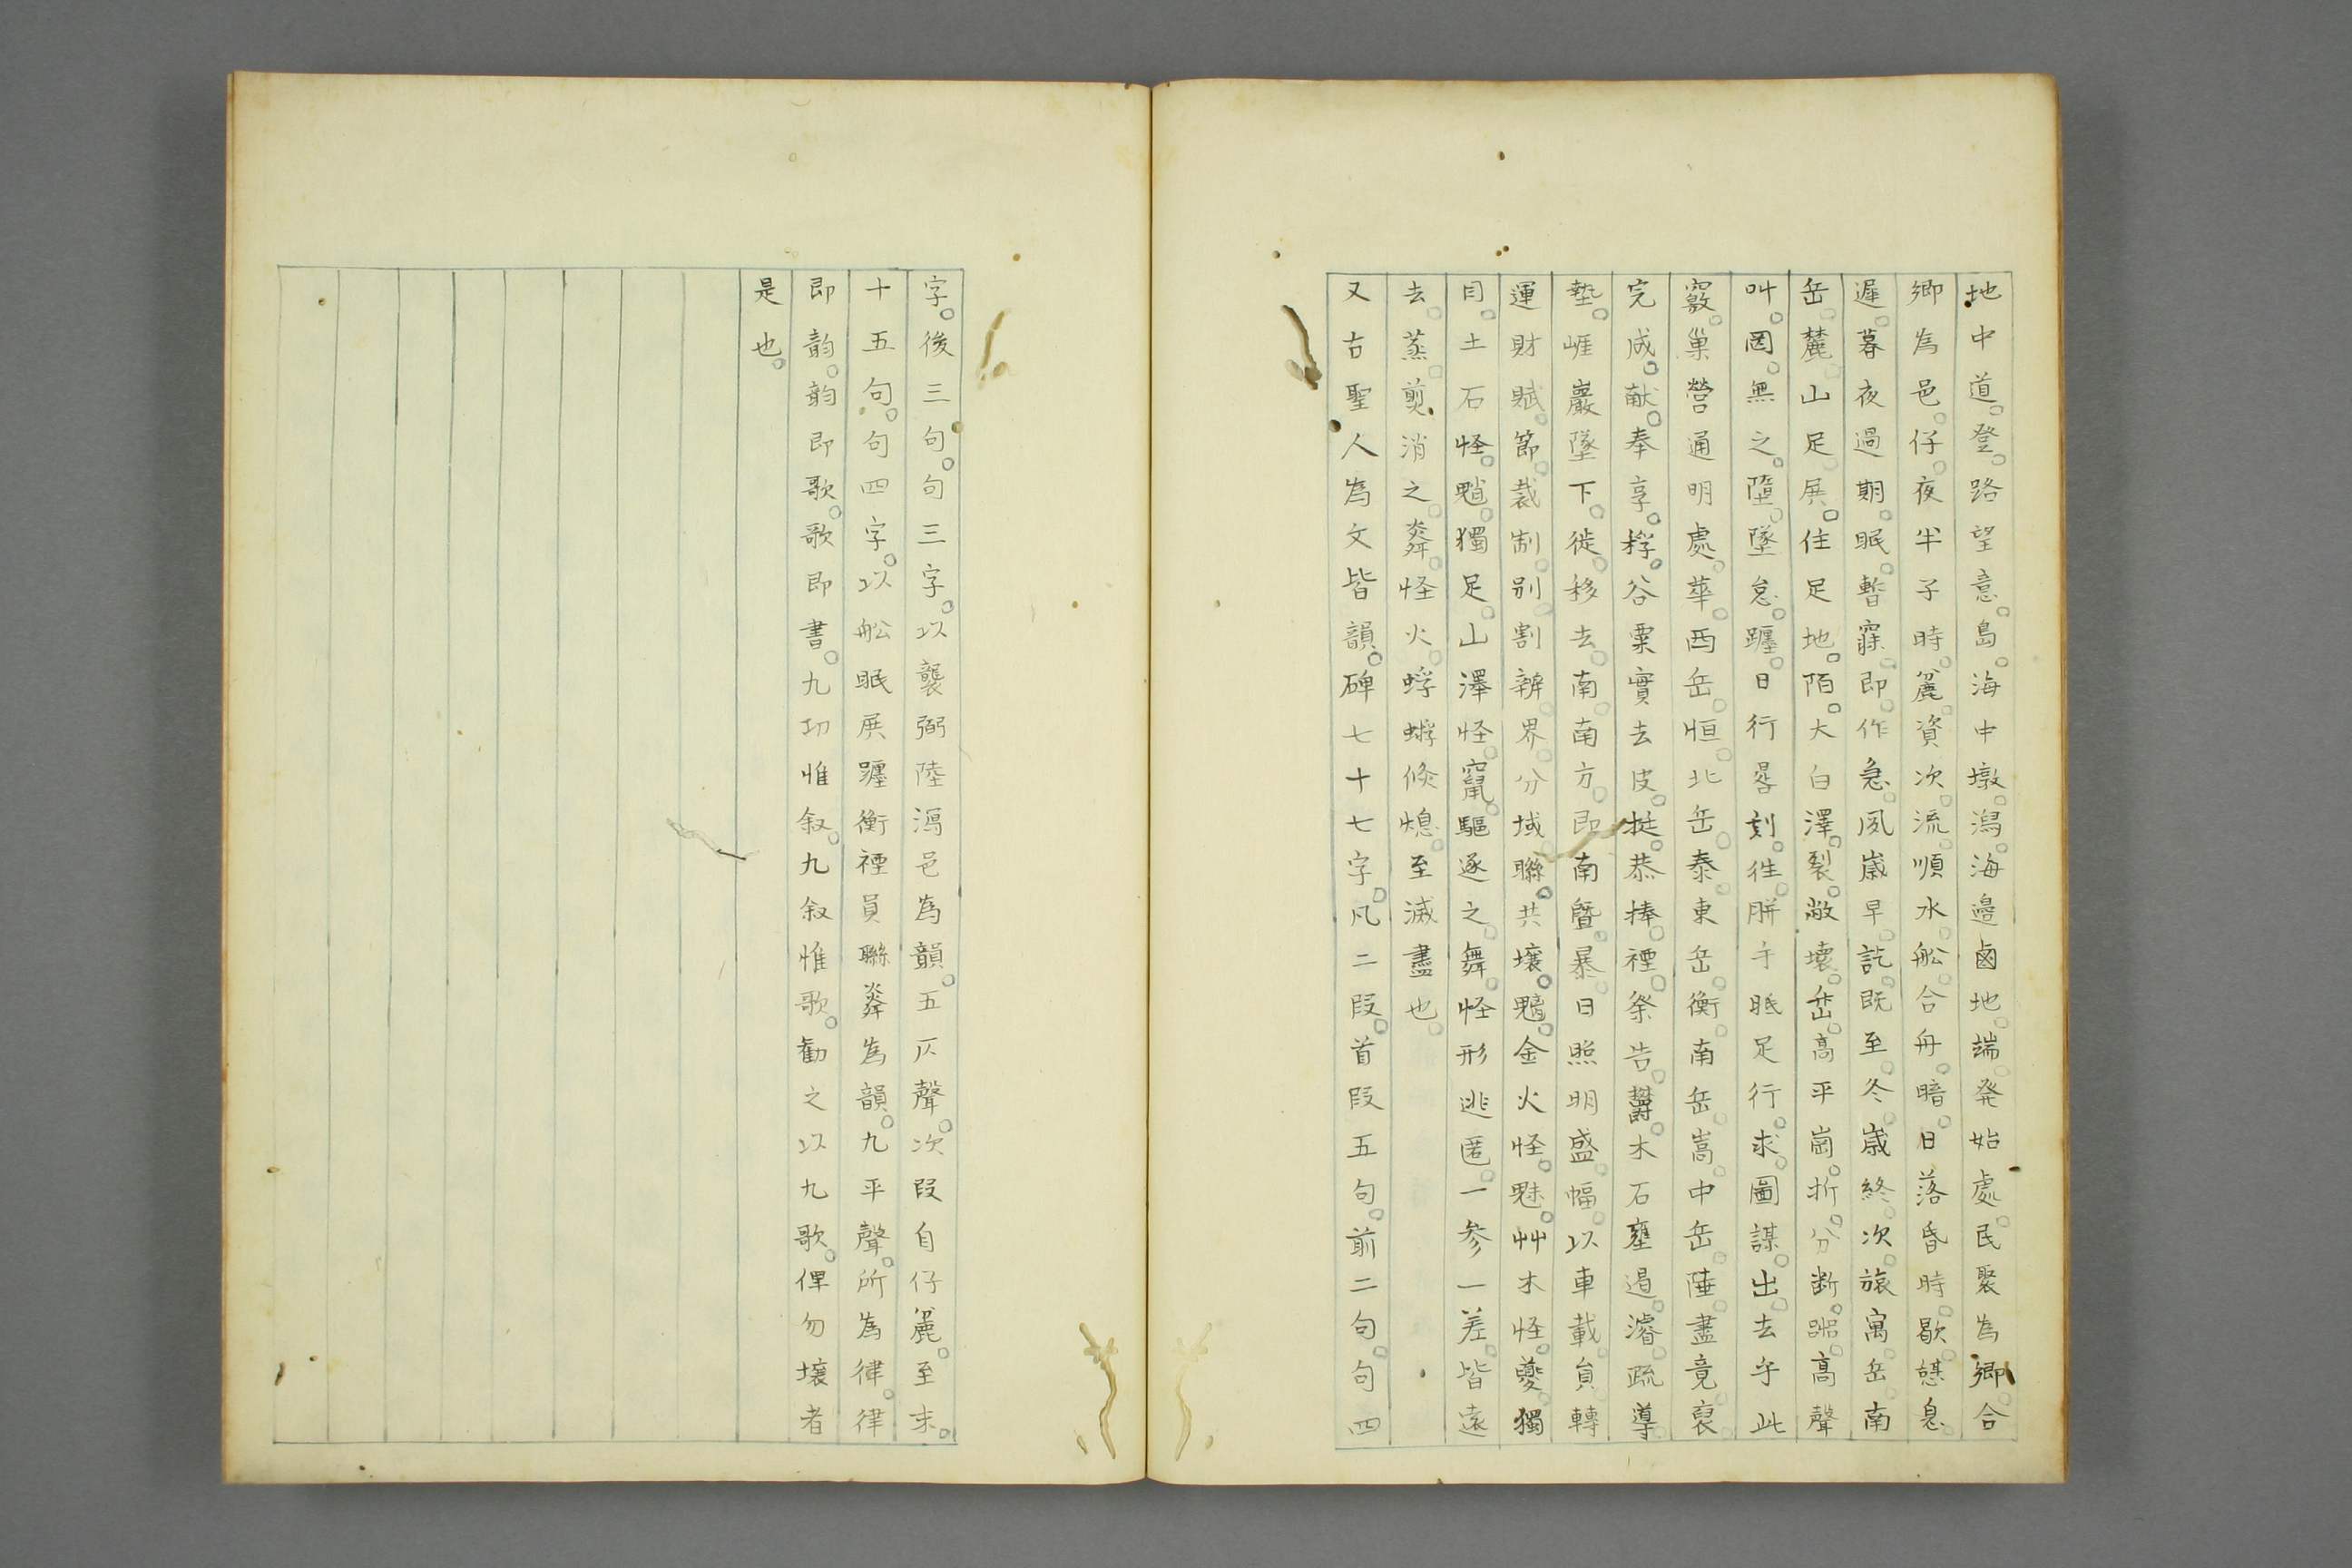 地中道。登。路望意。島。海中墩。潟。海邊鹵地。端。発始處。民聚為鄉。合
鄉為邑。仔。夜半子時。麄。資次。流。順水。舩。合舟。暗。日落昏時。歇。憇息。
遲。暮夜過期。眠。暫寢。即。作急。夙。歳早。訖。既至。冬。歳終。次。旅寓。岳。南
岳。麓。山足。展。住足地。陌。大白澤。裂。敝壞。岳。高平崗。折。分断。㗊。高聲
叫。罔。無之。墮。墜怠。躔。日行晷刻。徃。胼手胝足行。求。圖謀。出。去乎此
竅。巢營通明處。華。西岳。恒。北岳。泰。東岳。衡。南岳。嵩。中岳。陲。盡竟。裒。
完成。献。奉享。稃。谷粟實去皮。挺。恭捧。禋。祭告。欝。木石壅遏。濬。疏導
墊。崕巖墜下。徙。移去。南。南方。即南。曁。暴。日照明盛。幅。以車載。負。轉
運財賦。節。裁制。别。割辨。界。分域。聯。共壤。魑。金火怪。魅。艸木怪。夔。獨
目。土石怪。魈。獨足。山澤怪。竄。驅逐之。舞。怪形逃匿。一参一差。皆遠
去。蒸。剪。消之。燊。怪火。蜉蝣。倏熄。至滅盡也。
又古聖人為文皆韻。碑七十七字。凡二叚。首叚五句。前二句。句四
字。後三句。句三字。以襲弼陸潟邑為韻。五仄聲。次叚自仔麄。至末。
十五句。句四字。以舩眠展躔衡禋員聯燊為韻。九平聲。所為律。律
即韵。韵即歌。歌即書。九功惟叙。九叙惟歌。勸之以九歌。俾勿壊者
是也。